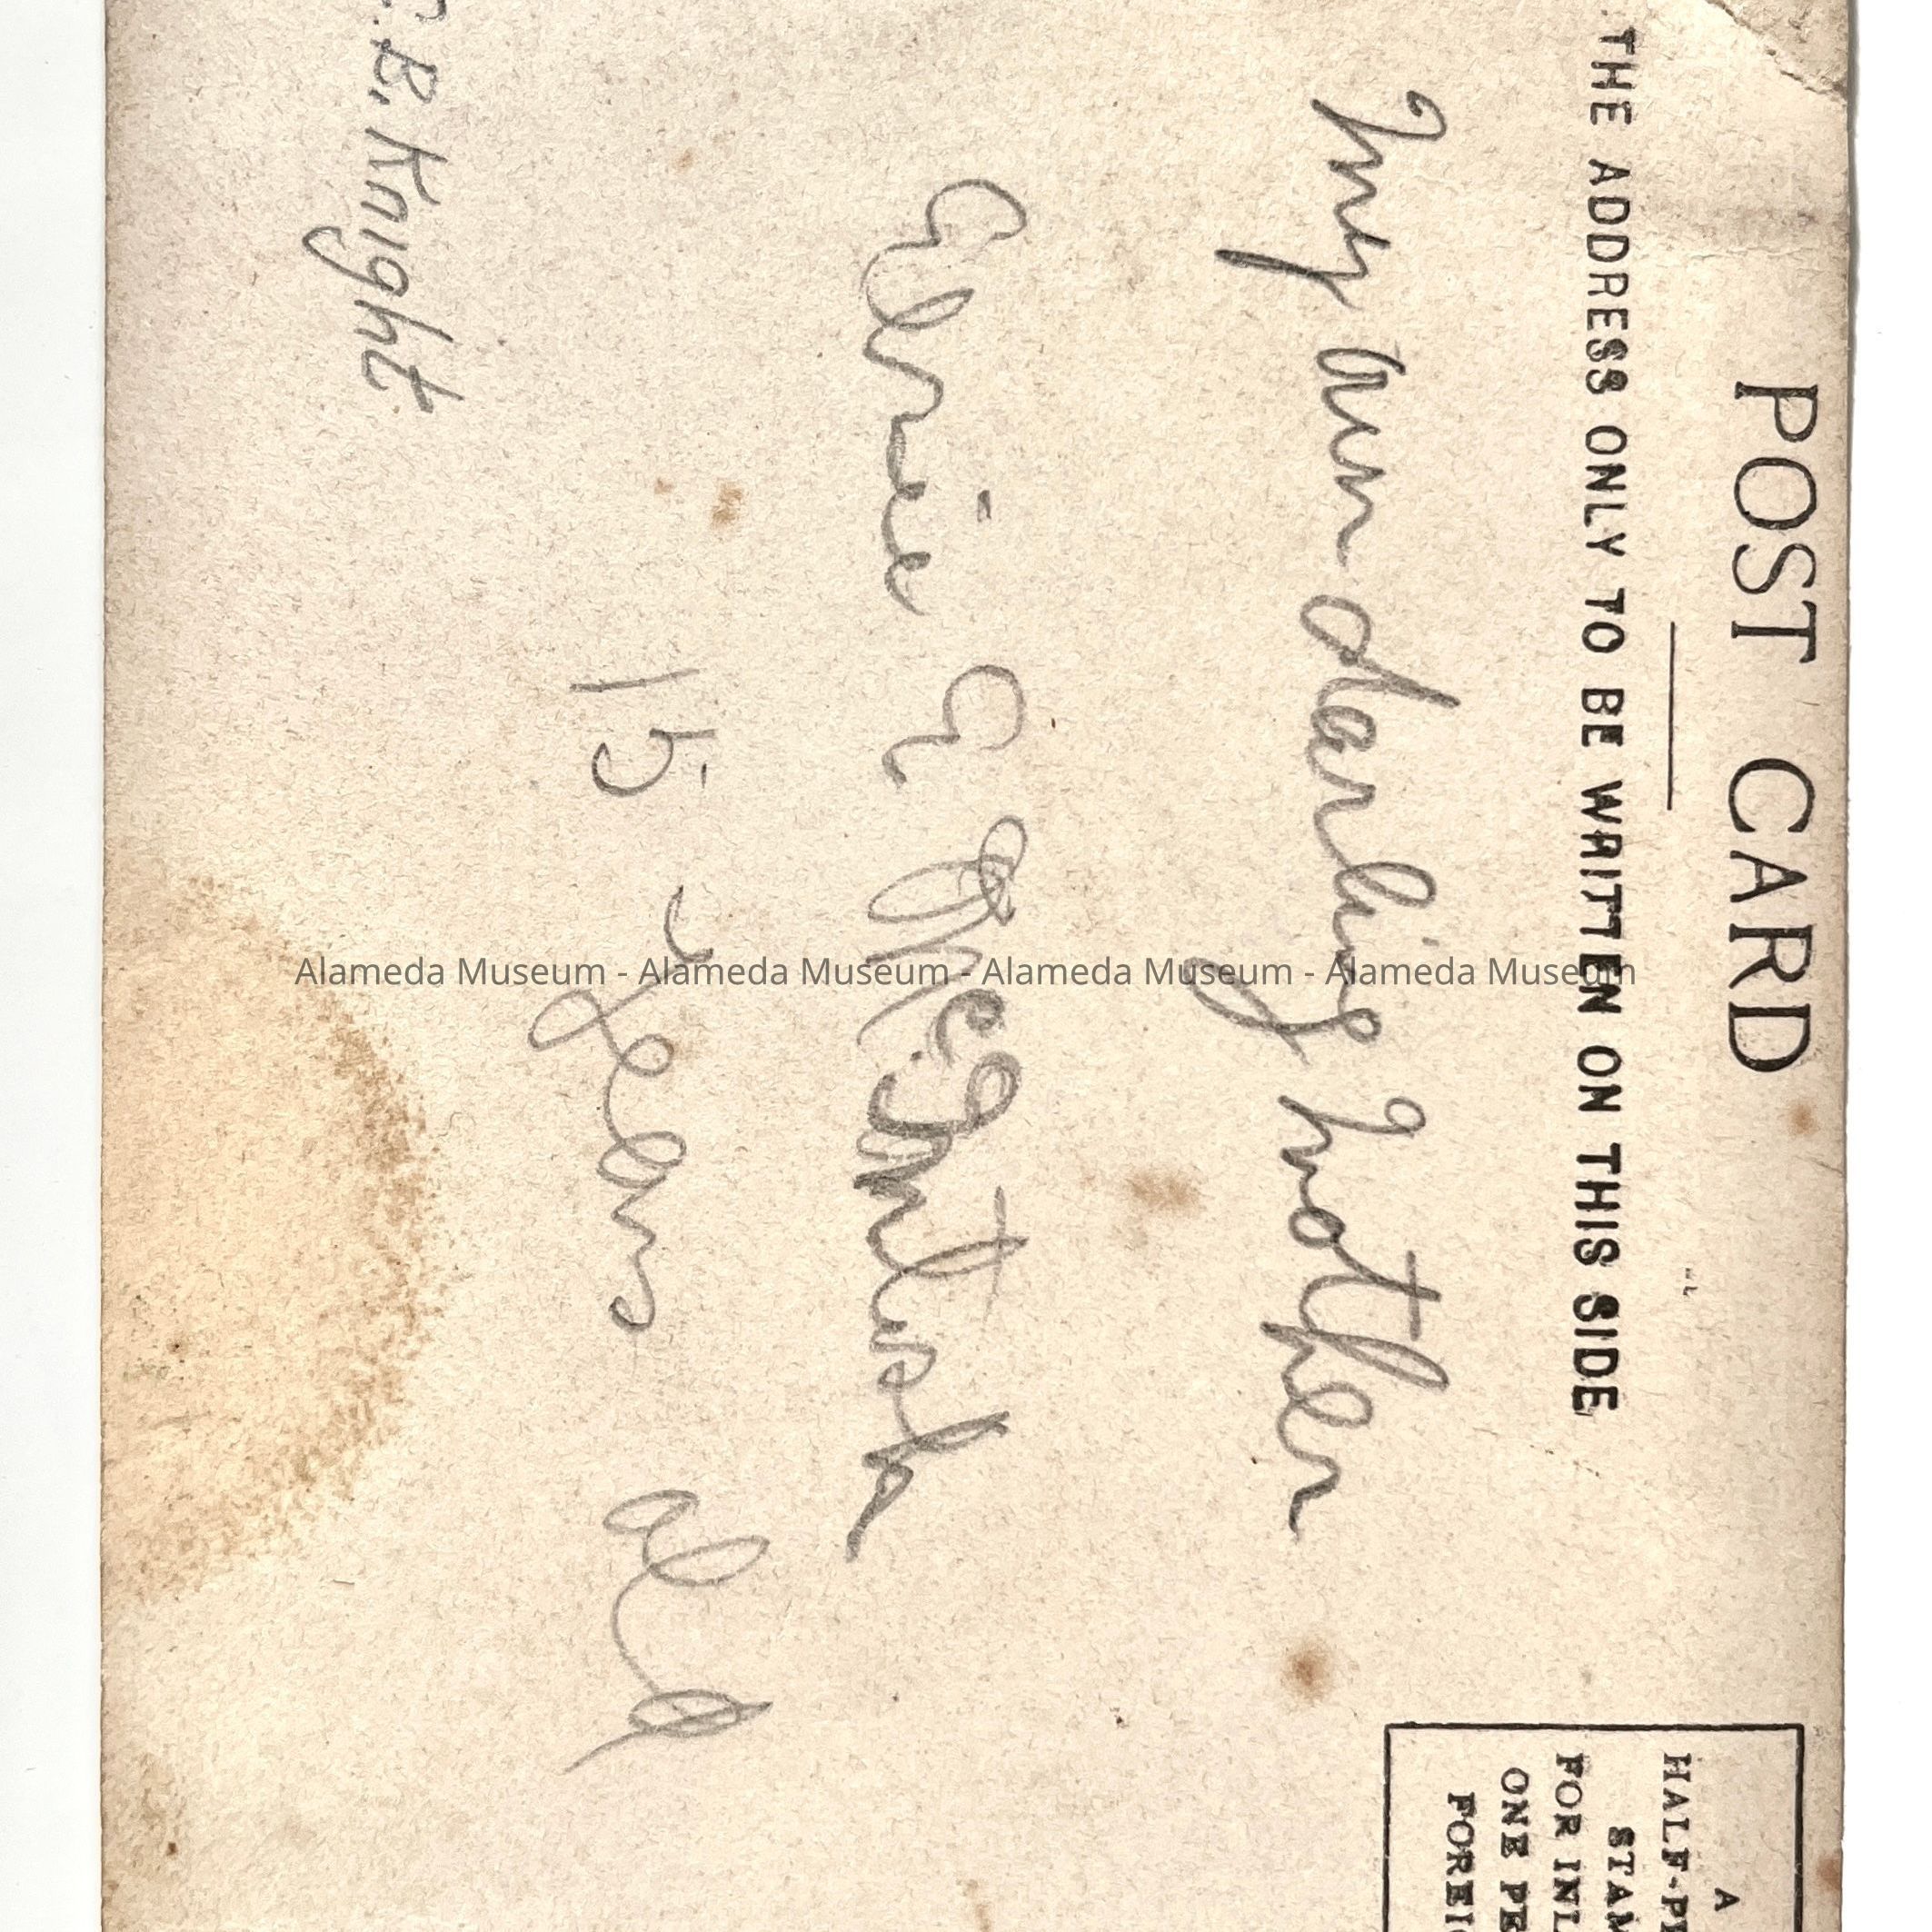 POST CARD
THE ADDRESS ONLY TO BE WRITTEN ON THIS SIDE
A
HALF-PE
STAM
FOR INL
ONE PE
FOREI
My own darling Mother
a Mc
15 years old
C. B. Knight
Alameda Museum - Alameda Museum - Alameda Museum - Alameda Museum